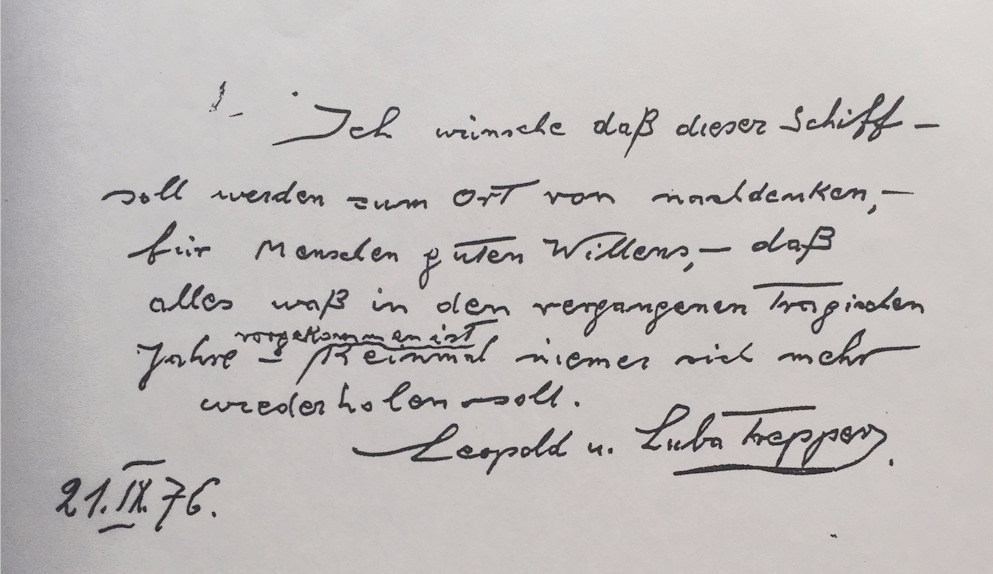 Ich wünsche daß dieser Schiff –
soll werden zum Ort von nachdenken, –
für Menschen guten Willens, – daß
alles waß in den vergangenen tragischen
vorgekommen ist
Jahre – Keinmal niemer sich mehr
wiederholen soll.
Leopold u. Luba Trepper.
21.IX.76.